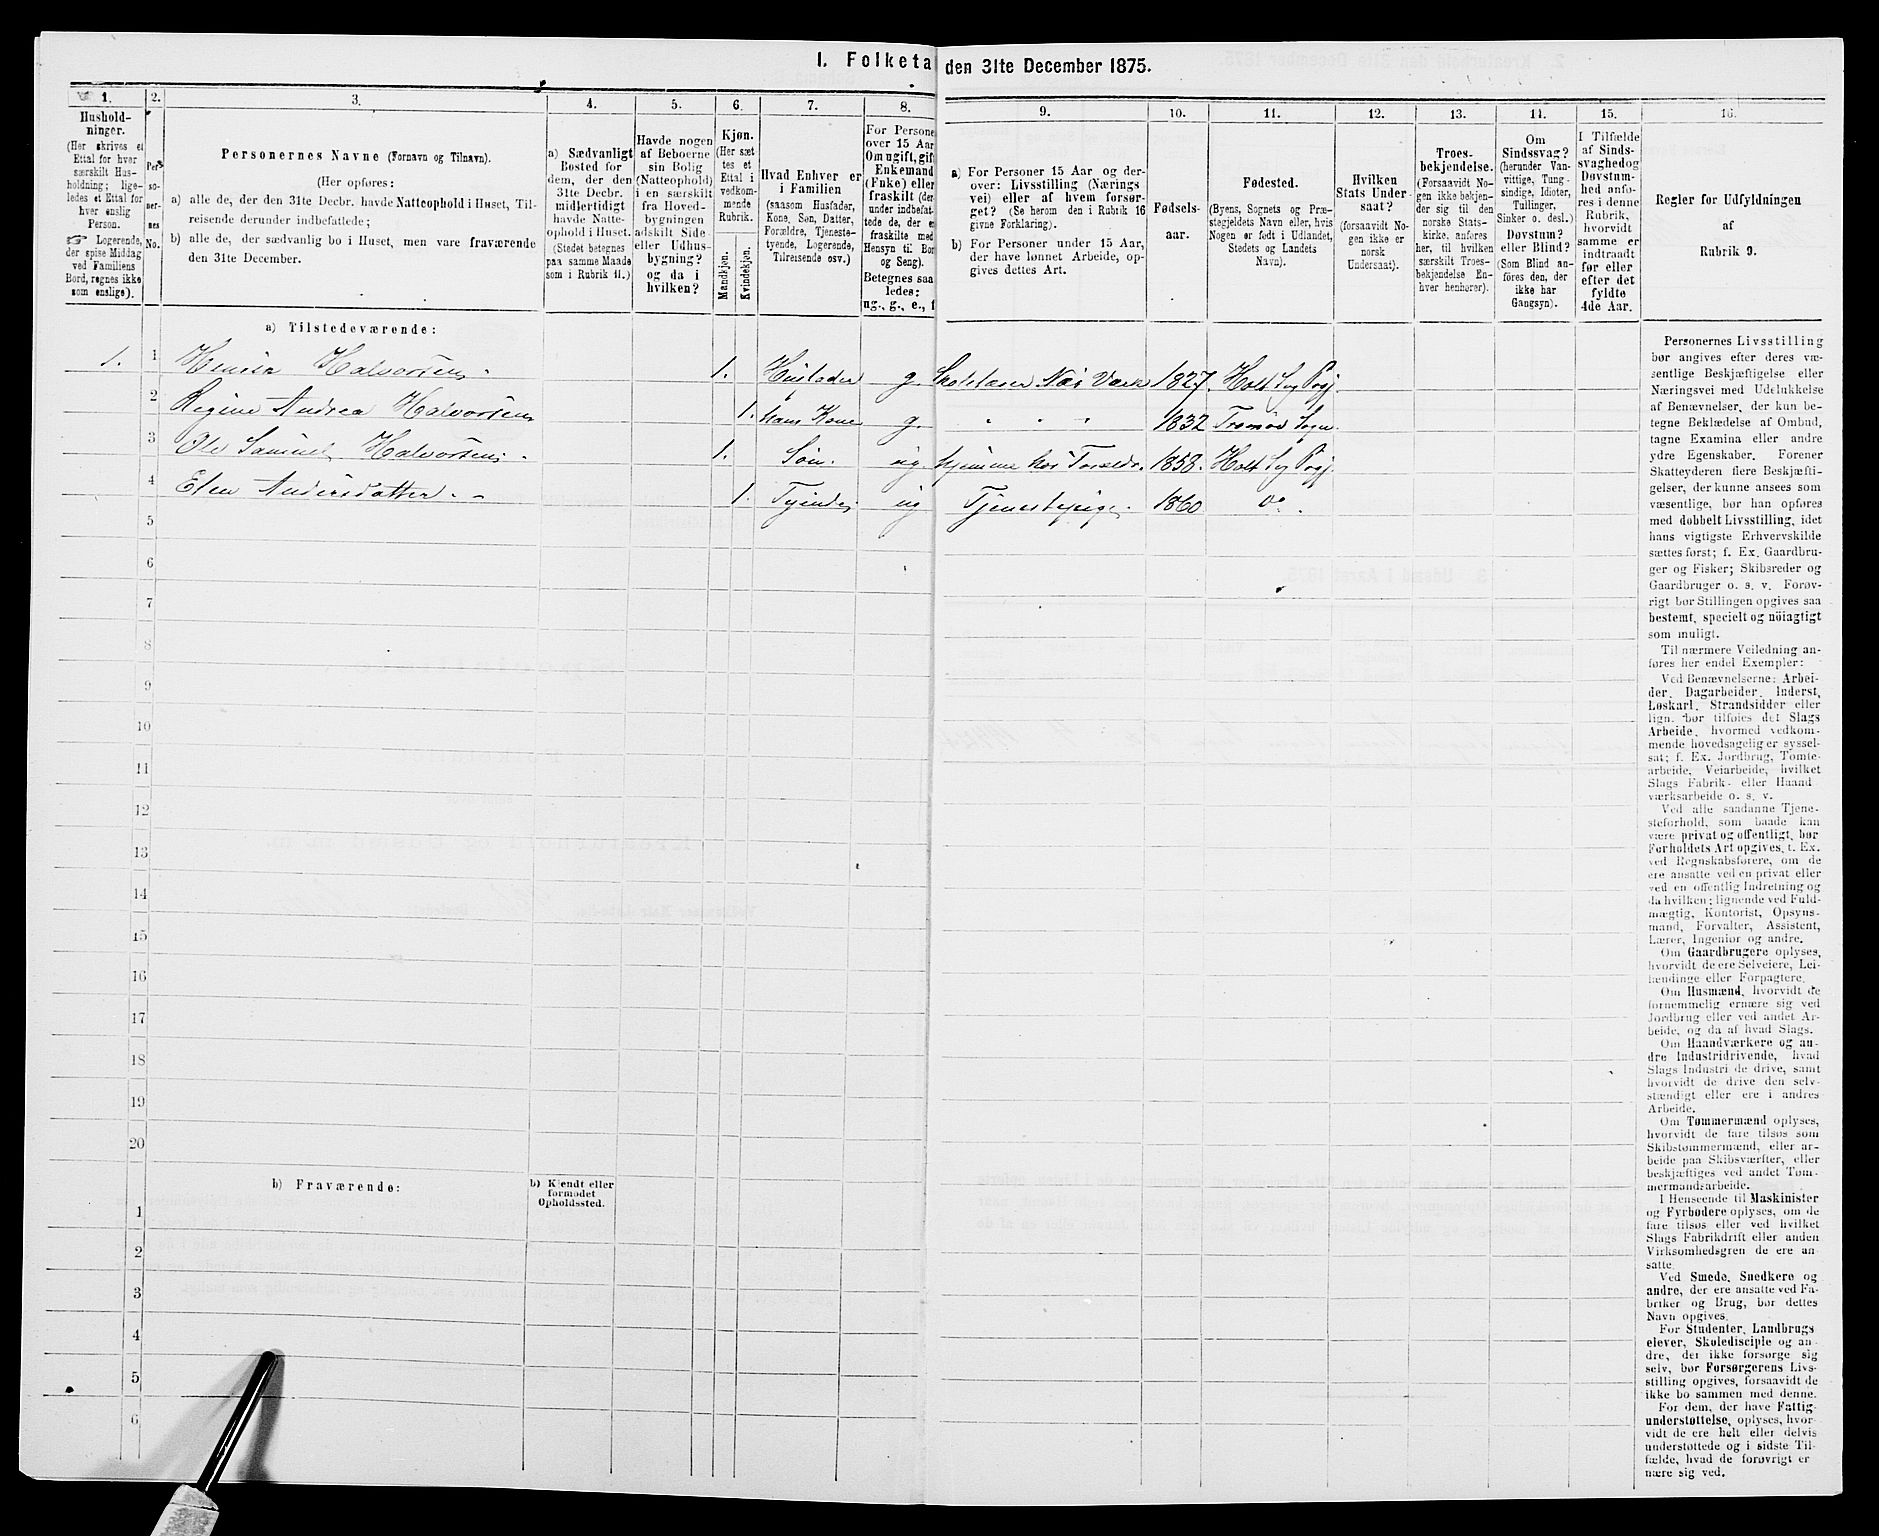 1. Folketæ den 31te December 1875.
1. 2. 3. 4. 5. 6. 7. 8. 9. 10. 11. 12. 13. 14. 15. 16.
Hushold-
ninger.
(Her skrives et
Ettal for hver
særskilt Hus-
holdning; lige-
ledes et Ettal for
hver enslig
Person.
☞ Logerende,
der spise Middag
ved Familiens
Bord, regnes ikke
som enslige).
Per-
so-
ner-
nes
No.
Personernes Navne (Fornavn og Tilnavn).
(Her opføres:
a) alle de, der den 31te Decbr. havde Natteophold i Huset, Til-
reisende derunder indbefattede;
b) alle de, der sædvanlig bo i Huset, men vare fraværende
den 31te December.
a) Sædvanligt
Bosted for
dem, der den
31te Decbr.
midlertidigt
havde Natte-
ophold i Huset.
(Stedet betegnes
paa samme Maade
som i Rubrik 11.)
Havde nogen
af Beboerne
sin Bolig
(Natteophold)
i en særskilt
fra Hoved-
bygningen
adskilt Side-
eller Udhus-
bygning?
og da i
hvilken?
Kjøn.
(Her sæt-
tes et
Ettal i
vedkom-
mende
Rubrik.
Mandkjøn.
Kvindekjøn.
Hvad Enhver er
i Familien
(saasom Husfader,
Kone, Søn, Datter,
Forældre, Tjeneste-
tyende, Logerende,
Tilreisende osv.)
For Persone
over 15 Aar
Om ugift, gift
Enkemand
(Enke) eller
fraskilt (der-
under indbefat-
tede de, der e
fraskilte med
Hensyn til Bor
og Seng).
Betegnes saa
ledes:
ug., g., e., f
a) For Personer 15 Aar og der-
over: Livsstilling (Nærings
vei) eller af hvem forsør-
get? (Se herom den i Rubrik 16
givne Forklaring).
b) For Personer under 15 Aar,
der have lønnet Arbeide, op-
gives dettes Art.
Fødsels-
aar.
Fødested.
(Byens, Sognets og Præ-
stegjeldets Navn eller, hvis
Nogen er født i Udlandet,
Stedets og Landets
Navn).
Hvilken
Stats Under-
saat?
(forsaavidt No-
gen ikke er
norsk
Undersaat).
Troes-
bekjendelse.
(Forsaavidt No-
gen ikke bekjen-
der sig til den
norske Stats-
kirke, anføres
her, til hvilken
særskilt Troes-
bekjendelse En-
hver henhører).
Om
Sindssvag?
(herunder Van-
vittige, Tung-
sindige, Idioter,
Tullinger,
Sinker o. desl.)
Døvstum?
eller Blind?
(Som Blind an-
føres den, der
ikke har
Gangsyn).
I Tilfælde
af Sinds-
svaghedog
Døvstum-
hed anfø-
res i denne
Rubrik,
hvorvidt
samme er
indtraadt
før eller
efter det
fyldte
4de Aar.
Regler for Udfyldningen
af
Rubrik 9.
a) Tilstedeværende:
1. 1 Halvorsen. 1. Husfader g. Skolelærer Næs Værk 1827. Holt Sogn
2 Regine Andrea Halvorsen 1. hans Kone g. " " " 1832 Tromø Sogn.
3 Ole Samuel Halvorsen. 1. Søn. ug. hjemme hos Foreldr. 1858. Holt
4 Elen Andersdatter. 1. ug Tjenestepige. 1860 do.
5
6
7
8
9
10
11
12
13
14
15
16
17
18
19
20
b) Fraværende:
b) Kjendt eller
formodet
Opholdssted.
1
2
3
4
5
6
Personernes Livsstilling
bør angives efter deres væ-
sentlige Beskjæftigelse eller
Næringsvei med Udelukkelse
af Benævnelser, der kun be-
tegne Beklædelse af Ombud,
tagne Examina eller andre
ydre Egenskaber. Forener
Skatteyderen flere Beskjæfti-
gelser, der kunne ansees som
væsentlige, bør han opføres
med dobbelt Livsstilling, idet
hans vigtigste Erhvervskilde
sættes først; f. Ex. Gaardbru-
ger og Fisker; Skibsreder og
Gaardbruger o. s. v. Forøv-
rigt bør Stillingen opgives saa
bestemt, specielt og nöiagtigt
som muligt.
Til nærmere Veiledning an-
føres her endel Exempler:
Ved Benævnelserne: Arbei-
der, Dagarbeider, Inderst,
Løskarl, Strandsidder eller
lign. bør tilføies det Slags
Arbeide, hvormed vedkom-
mende hovedsagelig er syssel-
sat; f. Ex. Jordbrug, Tomte-
arbeide, Veiarbeide, hvilket
Slags Fabrik- eller Haand
værksarbeide o. s. v.
Ved alle saadanne Tjene-
steforhold, som baade kan
være privat og offentligt, bør
Forholdets Art opgives, t. Ex.
ved Regnskabsførere, om de
ere ansatte ved en privat eller
ved en offentlig Indretning og
da hvilken; lignende ved Fuld-
mægtig, Kontorist, Opsyns-
mand, Forvalter, Assistent,
Lærer, Ingeniør og andre.
Om Gaardbrugere oplyses,
hvorvidt de ere Selveiere, Lei-
lændinge eller Forpagtere.
Om Husmænd, hvorvidt de
fornemmelig ernære sig ved
Jordbrug eller ved andet Ar-
beide, og da af hvad Slags.
Om Haandværkere og an-
dre Industridrivende, hvad
Slags Industri de drive, samt
hvorvidt de drive den selv-
stændigt eller ere i andres
Arbeide.
Om Tømmermænd oplyses,
hvorvidt de fare tilsøs som
Skibstømmermænd, eller ar-
beide paa Skibsværfter, eller
beskjæftiges ved andet Tøm-
mermandsarbeide.
I Henseende til Maskinister
og Fyrbødere oplyses, om de
fare tilsøs eller ved hvilket
Slags Fabrikdrift eller anden
Virksomhedsgren de ere an-
satte.
Ved Smede, Snedkere og
andre, der ere ansatte ved Fa-
briker og Brug, bør dettes
Navn opgives.
For Studenter, Landbrugs
elever, Skoledisciple og an-
dre, der ikke forsørge sig
selv, bør Forsørgerens Livs-
stilling opgives, forsaavidt de
ikke bo sammen med denne.
For dem, der have Fattig-
understøttelse, oplyses, hvor-
vidt de ere helt eller delvis
understøttede og i sidste Til-
fælde, hvad de forøvrigt er
nære sig ved.